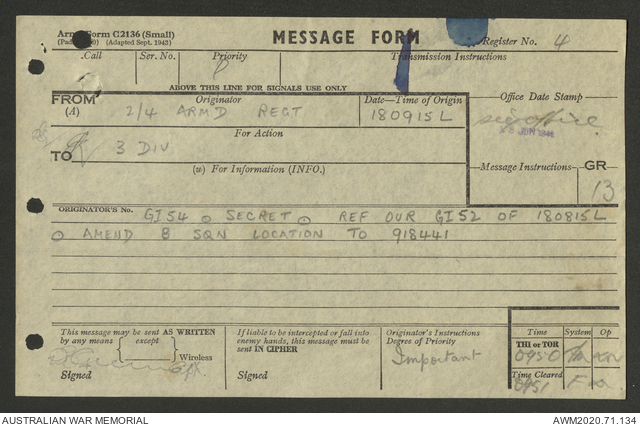 Army Form C2136 (Small) MESSAGE FORM Register No. 4
(Adapted Sept. 1943)
Call Ser. No. Priority Transmission Instructions
ABOVE THIS LINE FOR SIGNALS USE ONLY
FROM Originator Date—Time of Origin Office Date Stamp
(A) 2/4 ARMD REGT 180915L
For Action
TO 3 DIV
(w) For Information (INFO.) Message Instructions GR
13
ORIGINATOR'S No. GI54 ⊙ SECRET ⊙ REF OUR GI52 OF 180815L
⊙ AMEND B SQN LOCATION TO 918441
This message may be sent AS WRITTEN
by any means except
Wireless
Signed
If liable to be intercepted or fall into
enemy hands, this message must be
sent IN CIPHER
Signed
Originator's Instructions
Degree of Priority
Important
Time System Op
THI or TOR
0950
Time Cleared
0951
AUSTRALIAN WAR MEMORIAL AWM2020.71.134